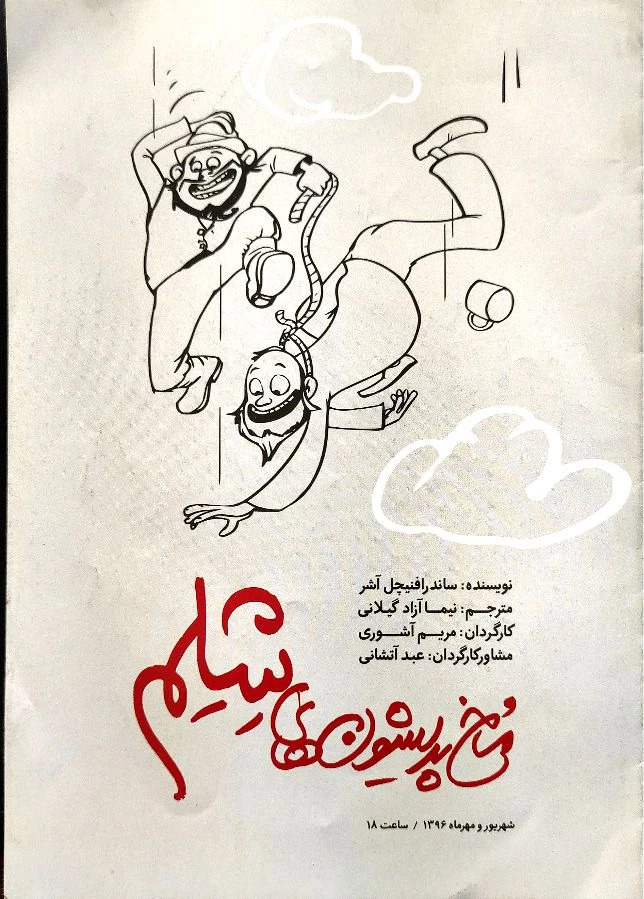 نویسنده: ساندرافنیچل آشر
مترجم: نیما آزاد گیلانی
کارگردان: مریم آشوری
مشاور کارگردان: عبد آتشانی
شِلِم
شهریور و مهرماه ۱۳۹۶ / ساعت ۱۸